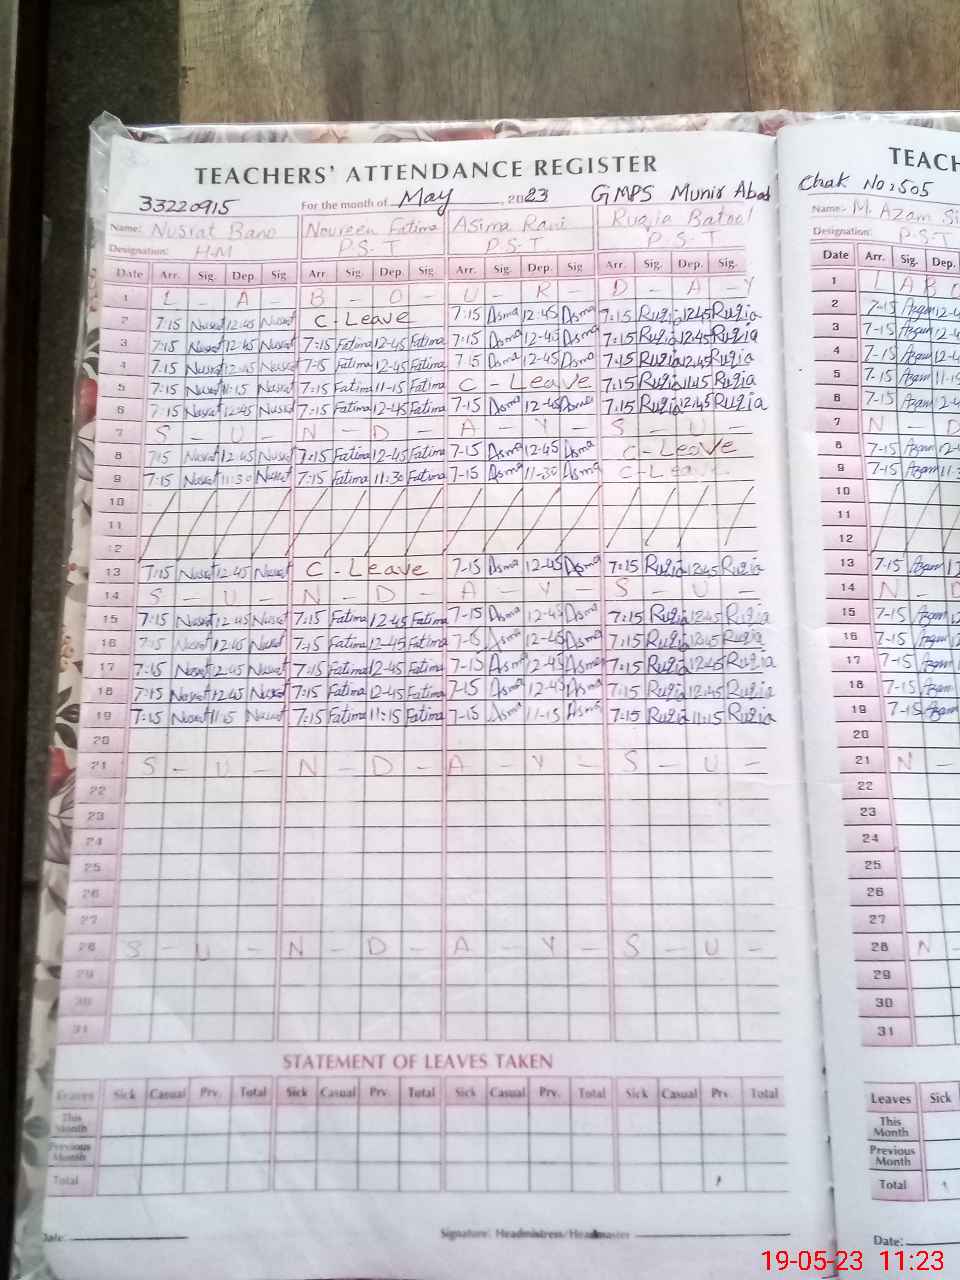 TEACHERS' ATTENDANCE REGISTER
33220915 For the month of May, 2023 GMPS Munir Abad Chak No: 505
Name: Nusrat Bano Noureen Fatima Asima Rani Ruqia Batool
Designation: H-M P-S-T P-S-T P-S-T
Date Arr. Sig. Dep. Sig Arr Sig. Dep. Sig. Arr. Sig. Dep. Sig Arr. Sig. Dep. Sig.
1 L - A - B - O - U - R - D - A - Y
2 7:15 Nusrat 12:45 Nusrat C-Leave 7:15 Asma 12-45 Asma 7:15 Ruqia 12:45 Ruqia
3 7:15 Nusrat 12:45 Nusrat 7-15 Fatima 12-45 Fatima 7-15 Asma 12-45 Asma 7:15 Ruqia 12:45 Ruqia
4 7:15 Nusrat 12:45 Nusrat 7:15 Fatima 12-45 Fatima 7.15 Asma 12-45 Asma 7:15 Ruqia 12:45 Ruqia
5 7:15 Nusrat 11:15 Nusrat 7:15 Fatima 11-15 Fatima C - Leave 7:15 Ruqia 11:15 Ruqia
6 7:15 Nusrat 12:45 Nusrat 7:15 Fatima 12-45 Fatima 7-15 Asma 12-45 Asma 7:15 Ruqia 12:45 Ruqia
7 S - U - N - D - A - Y - S - U -
8 7:15 Nusrat 12:45 Nusrat 7:15 Fatima 12-45 Fatima 7-15 Asma 12-45 Asma C-Leave
9 7:15 Nusrat 11:30 Nusrat 7:15 Fatima 11:30 Fatima 7-15 Asma 11-30 Asma C-Leave
10
11
12
13 7:15 Nusrat 12:45 Nusrat C - Leave 7-15 Asma 12-45 Asma 7:15 Ruqia 12:45 Ruqia
14 S - U - N - D - A - Y - S - U -
15 7:15 Nusrat 12:45 Nusrat 7:15 Fatima 12:45 Fatima 7-15 Asma 12-45 Asma 7:15 Ruqia 12:45 Ruqia
16 7:15 Nusrat 12:45 Nusrat 7:15 Fatima 12-45 Fatima 7-15 Asma 12-45 Asma 7:15 Ruqia 12:45 Ruqia
17 7:15 Nusrat 12:45 Nusrat 7:15 Fatima 12-45 Fatima 7-15 Asma 12-45 Asma 7:15 Ruqia 12:45 Ruqia
18 7:15 Nusrat 12:45 Nusrat 7:15 Fatima 12-45 Fatima 7-15 Asma 12-45 Asma 7:15 Ruqia 12:45 Ruqia
19 7:15 Nusrat 11:15 Nusrat 7:15 Fatima 11:15 Fatima 7-15 Asma 11-15 Asma 7:15 Ruqia 11:15 Ruqia
20
21 S - U - N - D - A - Y - S - U -
22
23
24
25
26
27
28 S - U - N - D - A - Y - S - U -
29
30
31
STATEMENT OF LEAVES TAKEN
Leaves Sick Casual Prv. Total Sick Casual Prv. Total Sick Casual Prv. Total Sick Casual Prv. Total
This Month
Previous Month
Total
Date: Signature: Headmistress/Headmaster
TEACH
Name:- M. Azam
Designation: P-S-T
Date Arr. Sig. Dep.
1 L A B
2 7-15 Azam 12-4
3 7-15 Azam 12-4
4 7-15 Azam 12-4
5 7-15 Azam 11-1
6 7-15 Azam
7 N - D
8 7-15 Azam 12-
9 7-15 Azam 11-3
10
11
12
13 7-15 Azam
14 N - D
15 7-15 Azam 12-4
16 7-15 Azam
17 7-15 Azam
18 7-15 Azam
19 7-15 Azam
20
21 N -
22
23
24
25
26
27
28 N -
29
30
31
Leaves Sick
This Month
Previous Month
Total
Date:
19-05-23 11:23